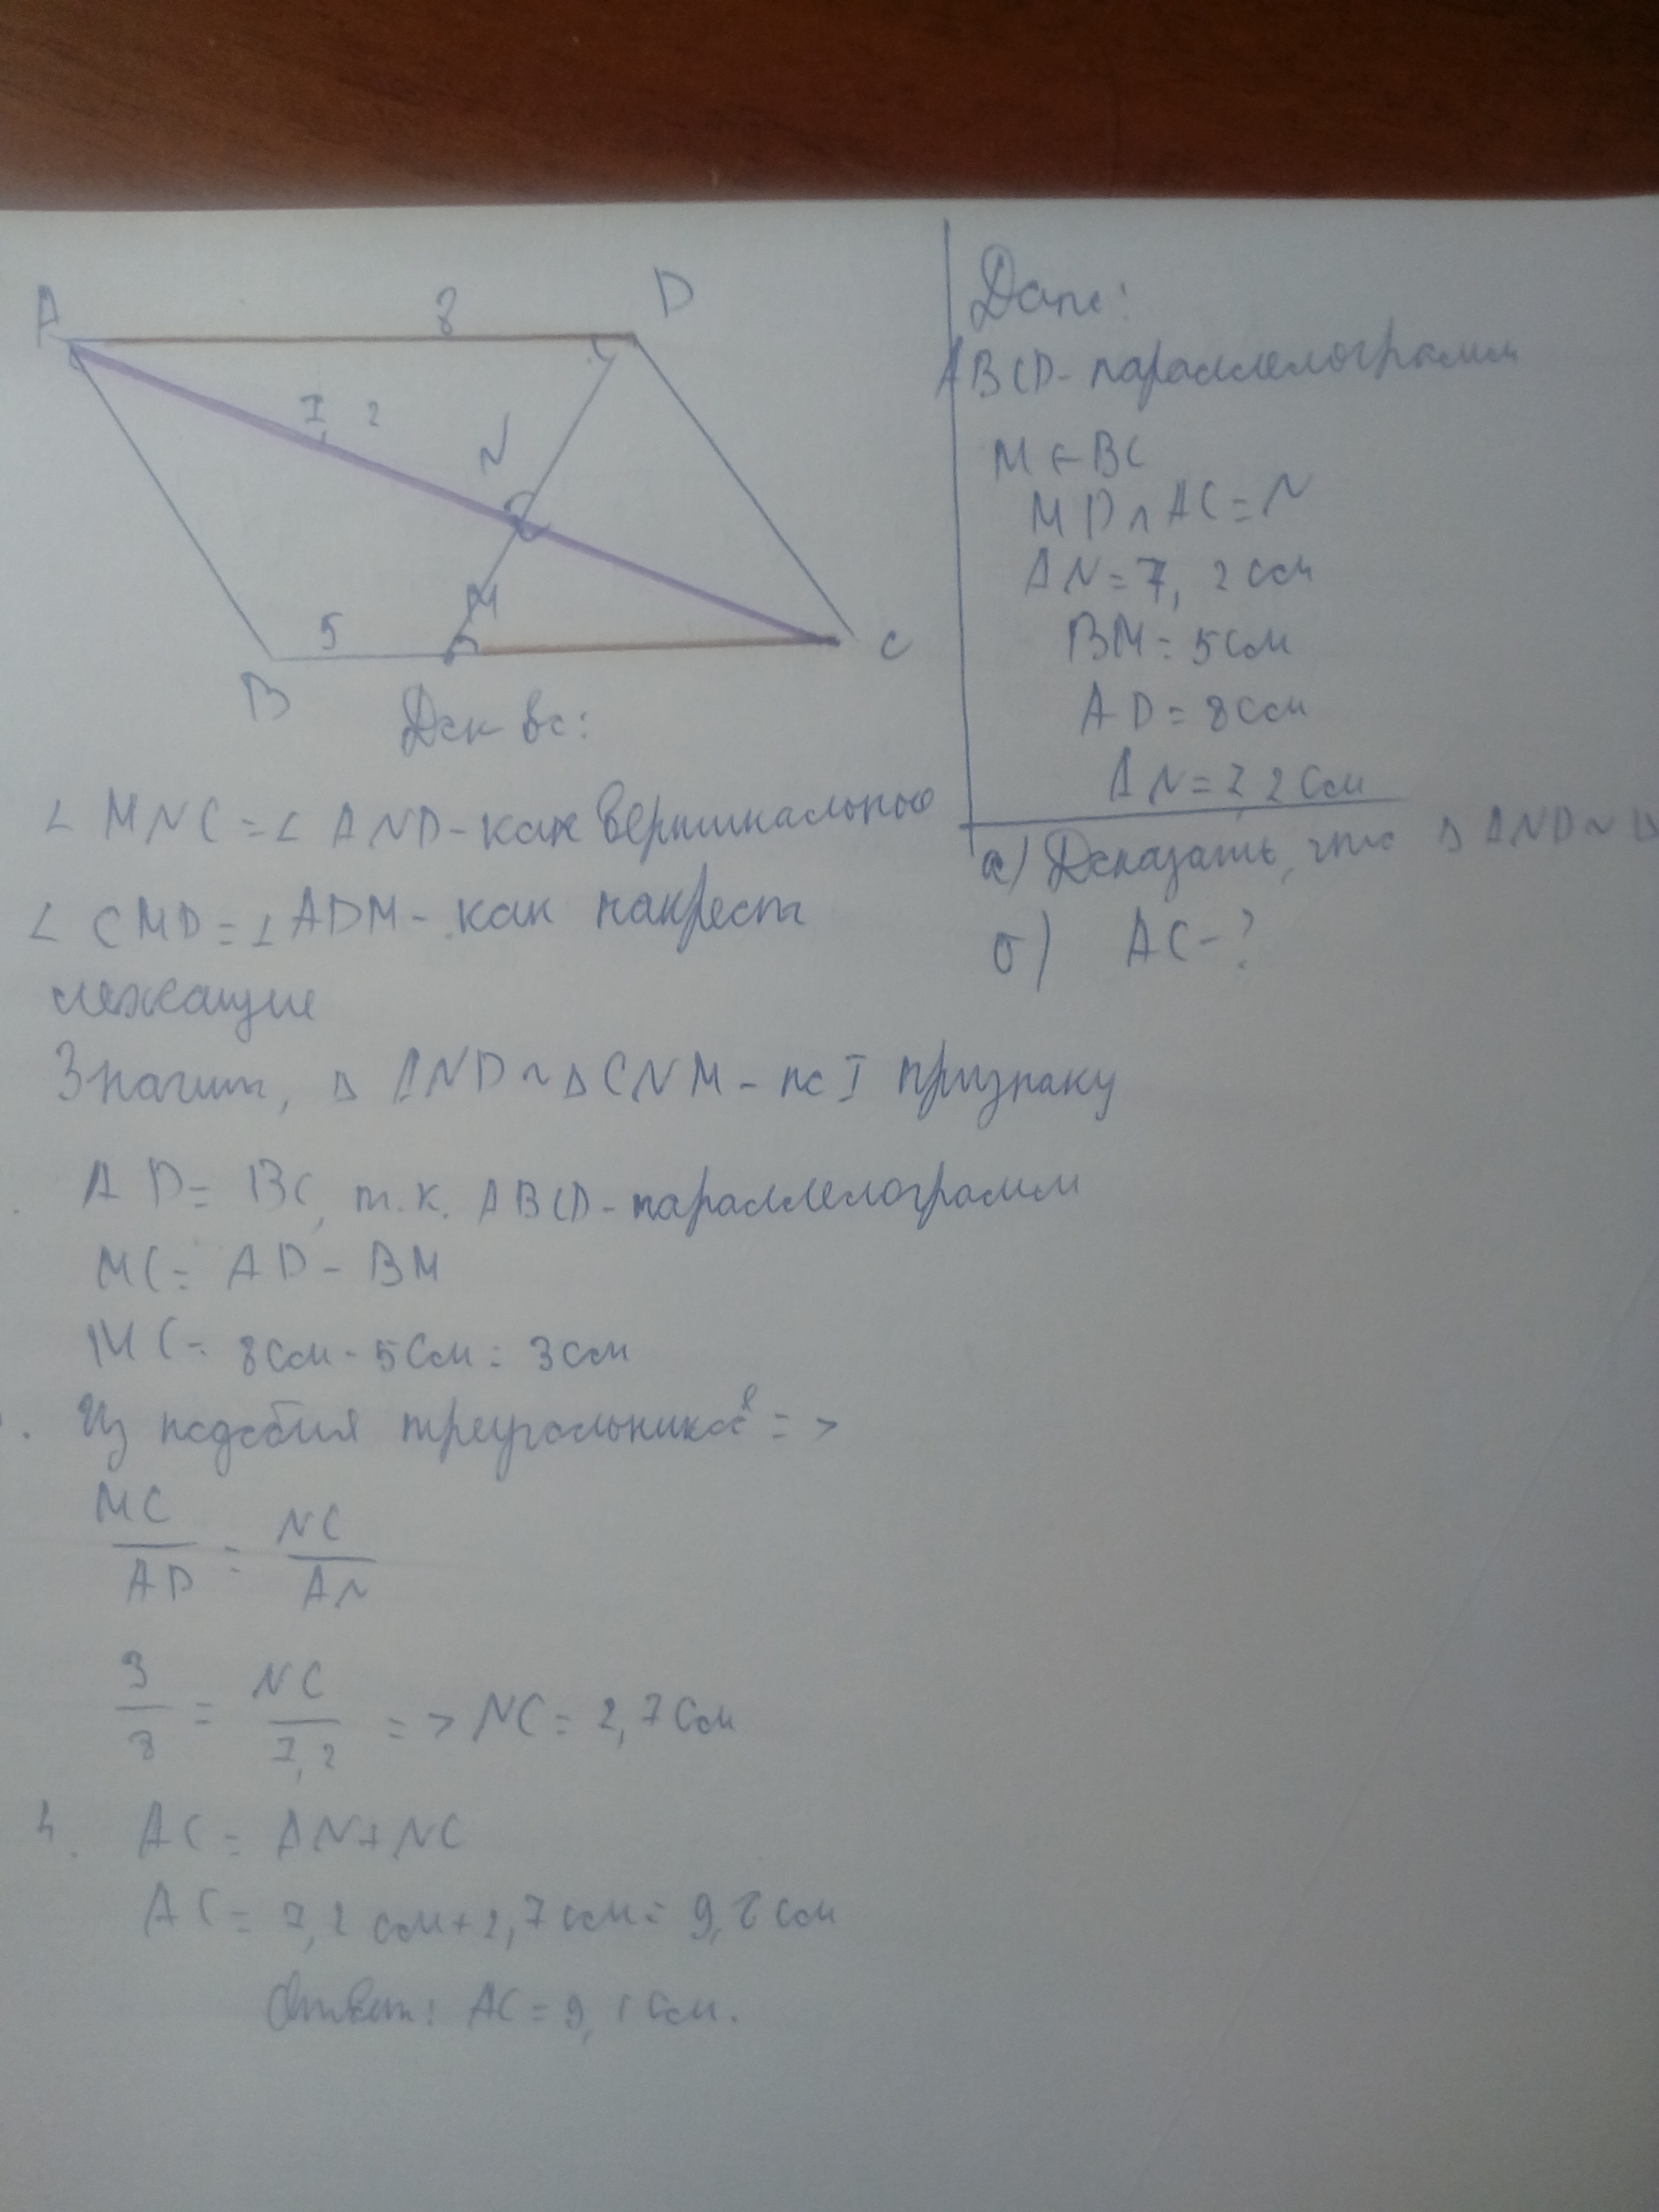 A
8
D
7,2
N
5
M
B
C
Дано:
ABCD - параллелограмм
M ∈ BC
MD ∩ AC = N
AN = 7,2 см
BM = 5 см
AD = 8 см
AN = 7,2 см
а) Доказать, что Δ AND ~ Δ
б) AC - ?
Док во:
∠ MNC = ∠ AND - как вертикальные
∠ CMD = ∠ ADM - как накрест
лежащие
Значит, Δ AND ~ Δ CNM - по I признаку
AD = BC, т.к. ABCD - параллелограмм
MC = AD - BM
MC = 8 см - 5 см = 3 см
Из подобия треугольников =>
MC/AD = NC/AN
3/8 = NC/7,2 => NC = 2,7 см
4. AC = AN + NC
AC = 7,2 см + 2,7 см =
Ответ: AC =